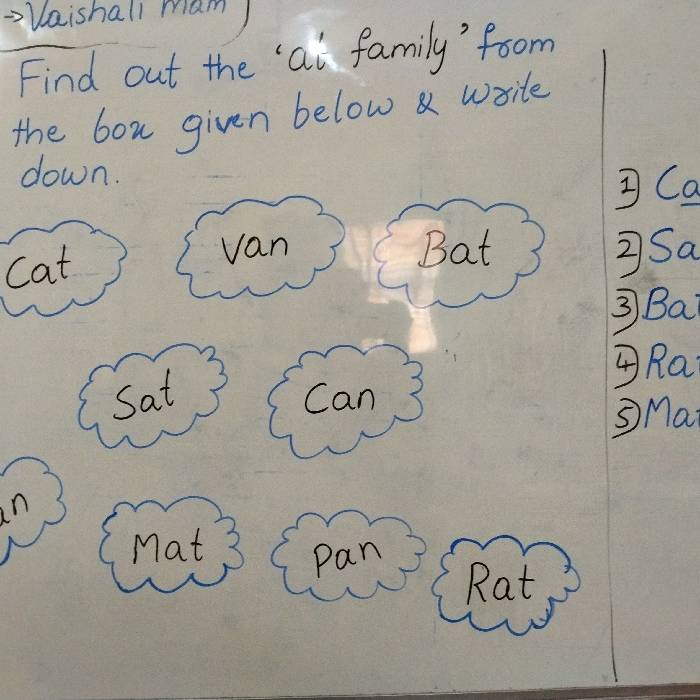 →Vaishali Mam
Find out the 'at family' from
the box given below & write
down.
Cat Van Bat
Sat Can
Mat Pan Rat
1)
2)
3)
4)
5)